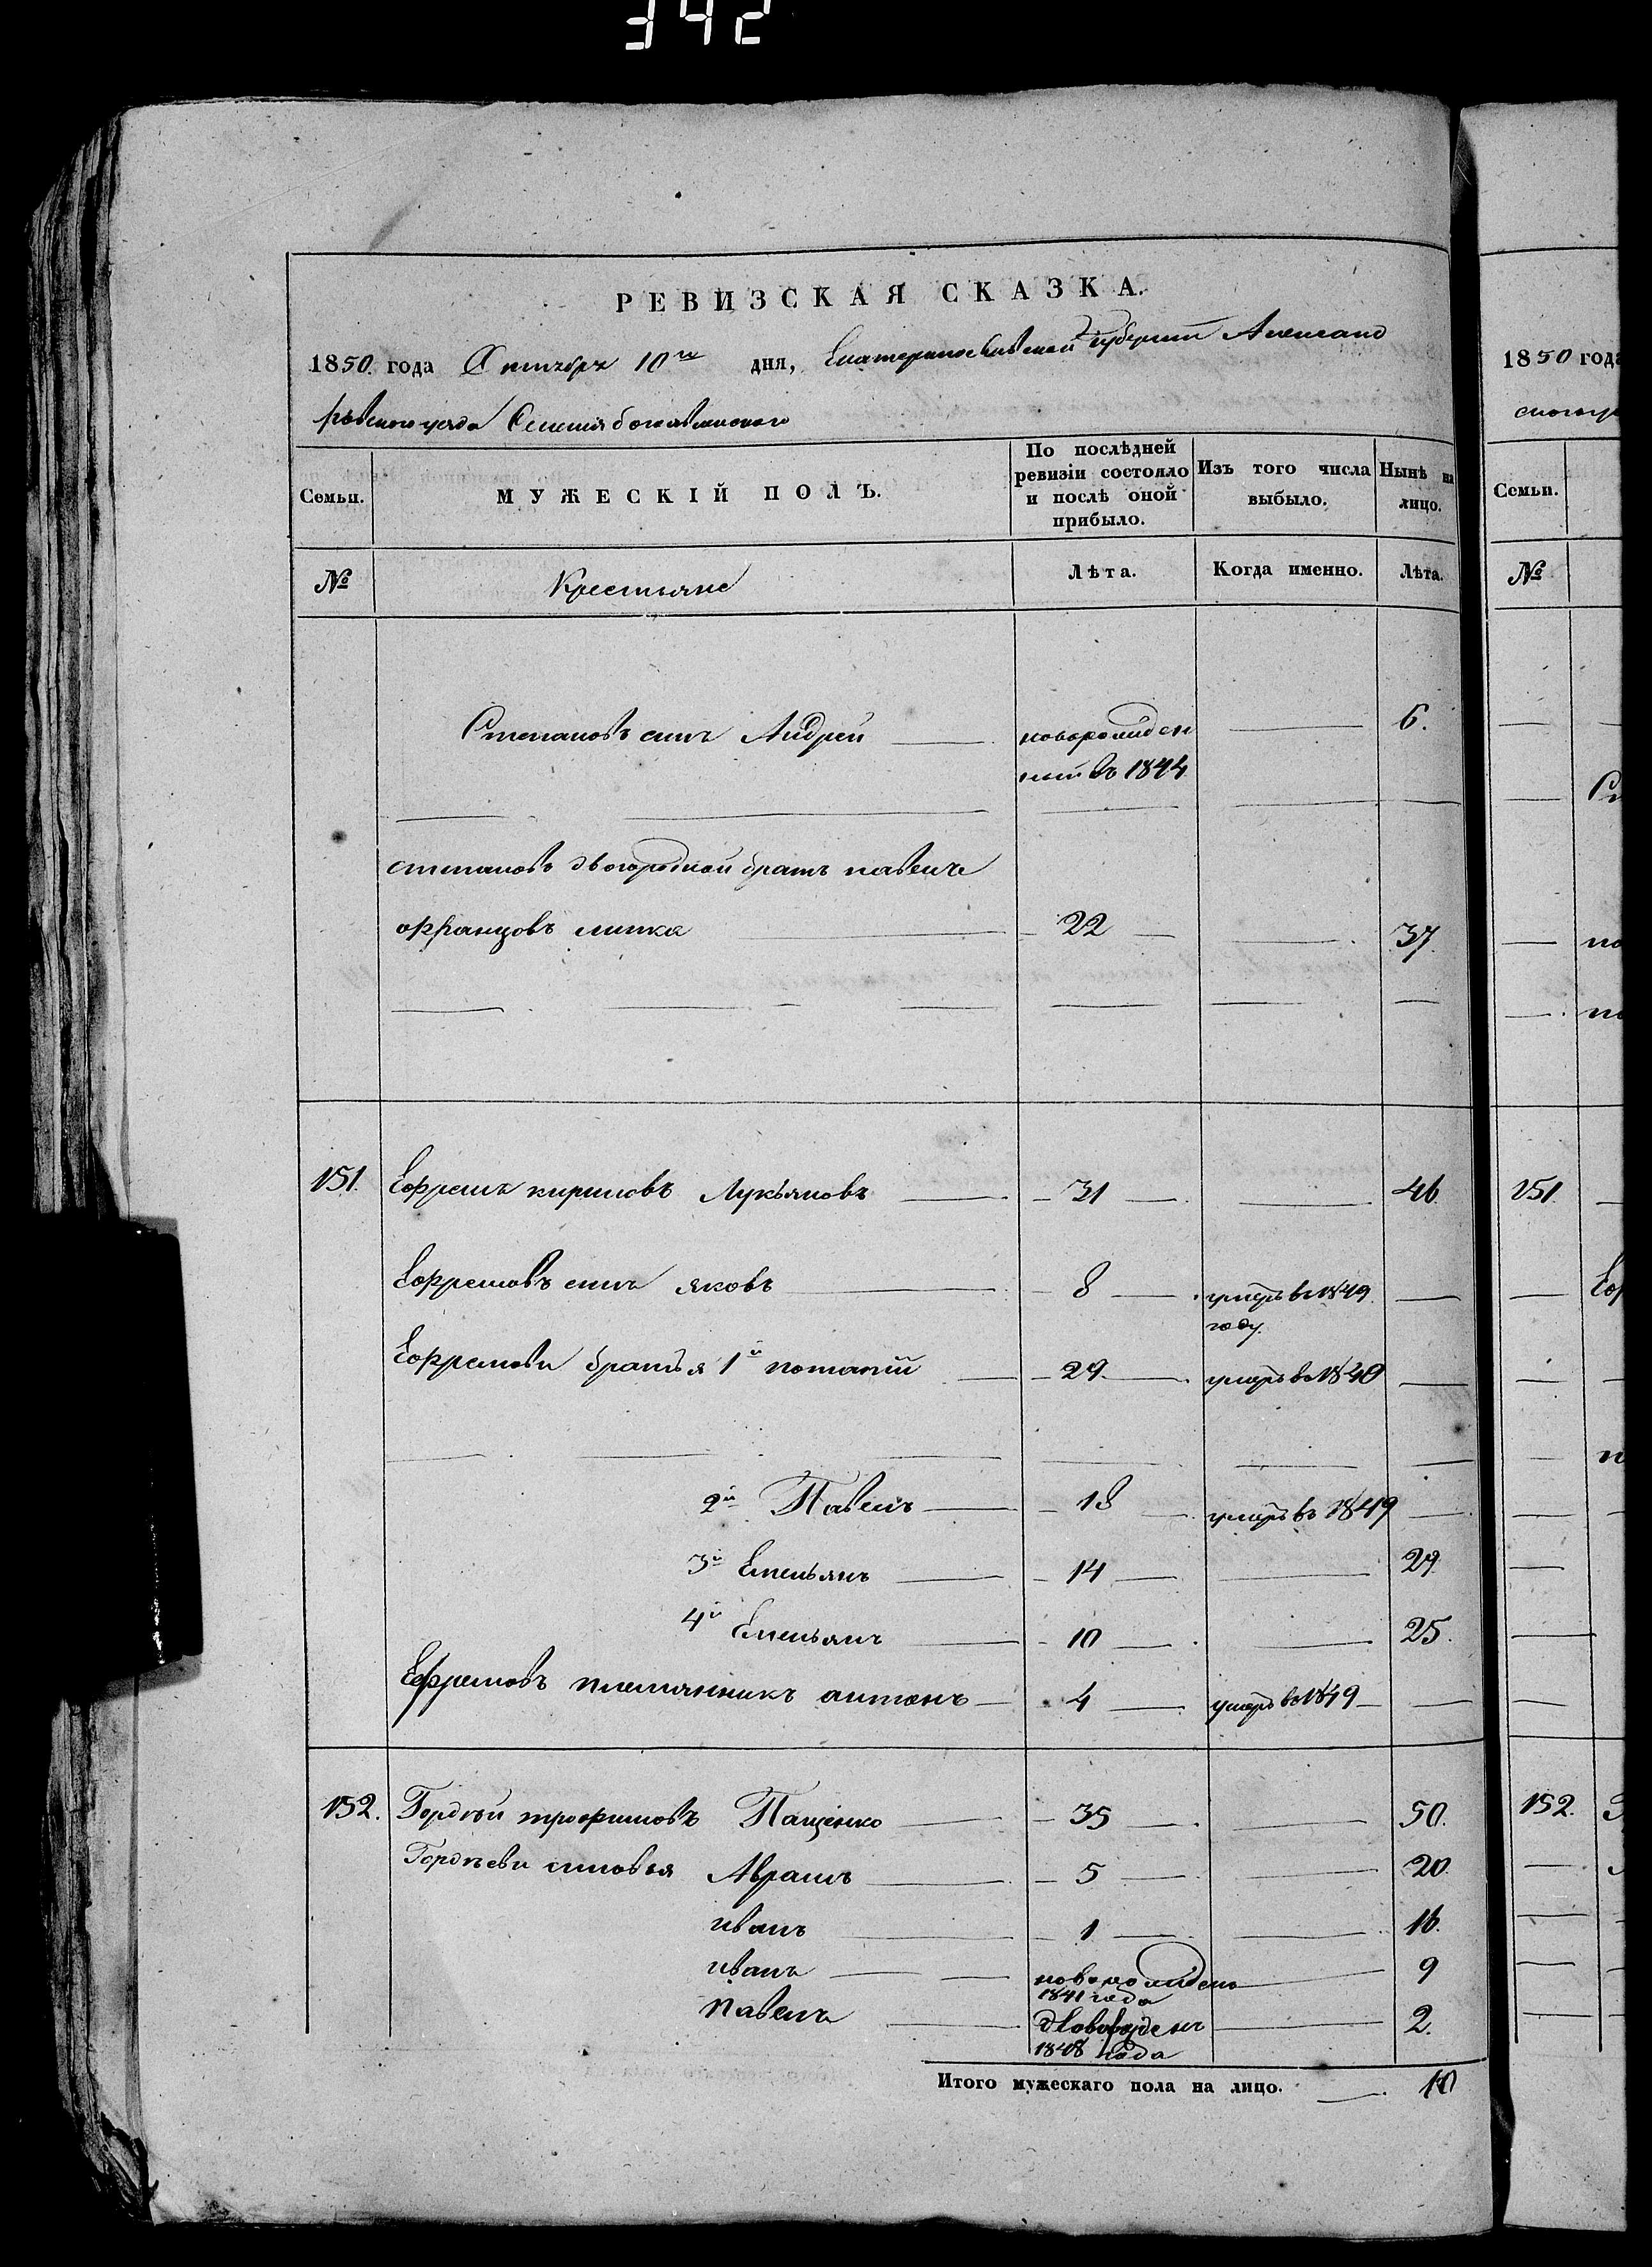 342
РЕВИЗСКАЯ СКАЗКА.
1850. года Октября 10го дня, Екатеринославской губернии Александ
ровского уезда Селения богоявленского
Семьи.
МУЖЕСКІЙ ПОЛЪ.
По послѣдней ревизіи состояло и послѣ оной прибыло.
Изъ того числа выбыло.
Нынѣ на лицо.
№
Крестьяне
Лѣта.
Когда именно.
Лѣта.
Степановъ синъ Андрей новорожден 6.
ний въ 1844
степановъ двогородной братъ павелъ
22 37
151. Ефремъ кириловъ Лукьяновъ 31 46
Ефремовъ синъ яковъ 8 умеръ въ 1849
году.
Ефремови братья 1й потапий 29 умеръ въ 1840
2й Павелъ 18 умеръ въ 1849
3й Емельянъ 14 29
4й Емельянъ 10 25.
Ефремовъ племянникъ антонъ 4 умеръ въ 1849
152. Гордѣй трофимовъ Пащенко 35 50.
Гордѣеви синовья Аврамъ 5 20
иванъ 1 16.
иванъ новорожденъ 9
1841 года
Павелъ Новорожденъ 2.
1848 года
Итого мужескаго пола на лицо. 10
1850 года
Семьи.
№
151.
152.